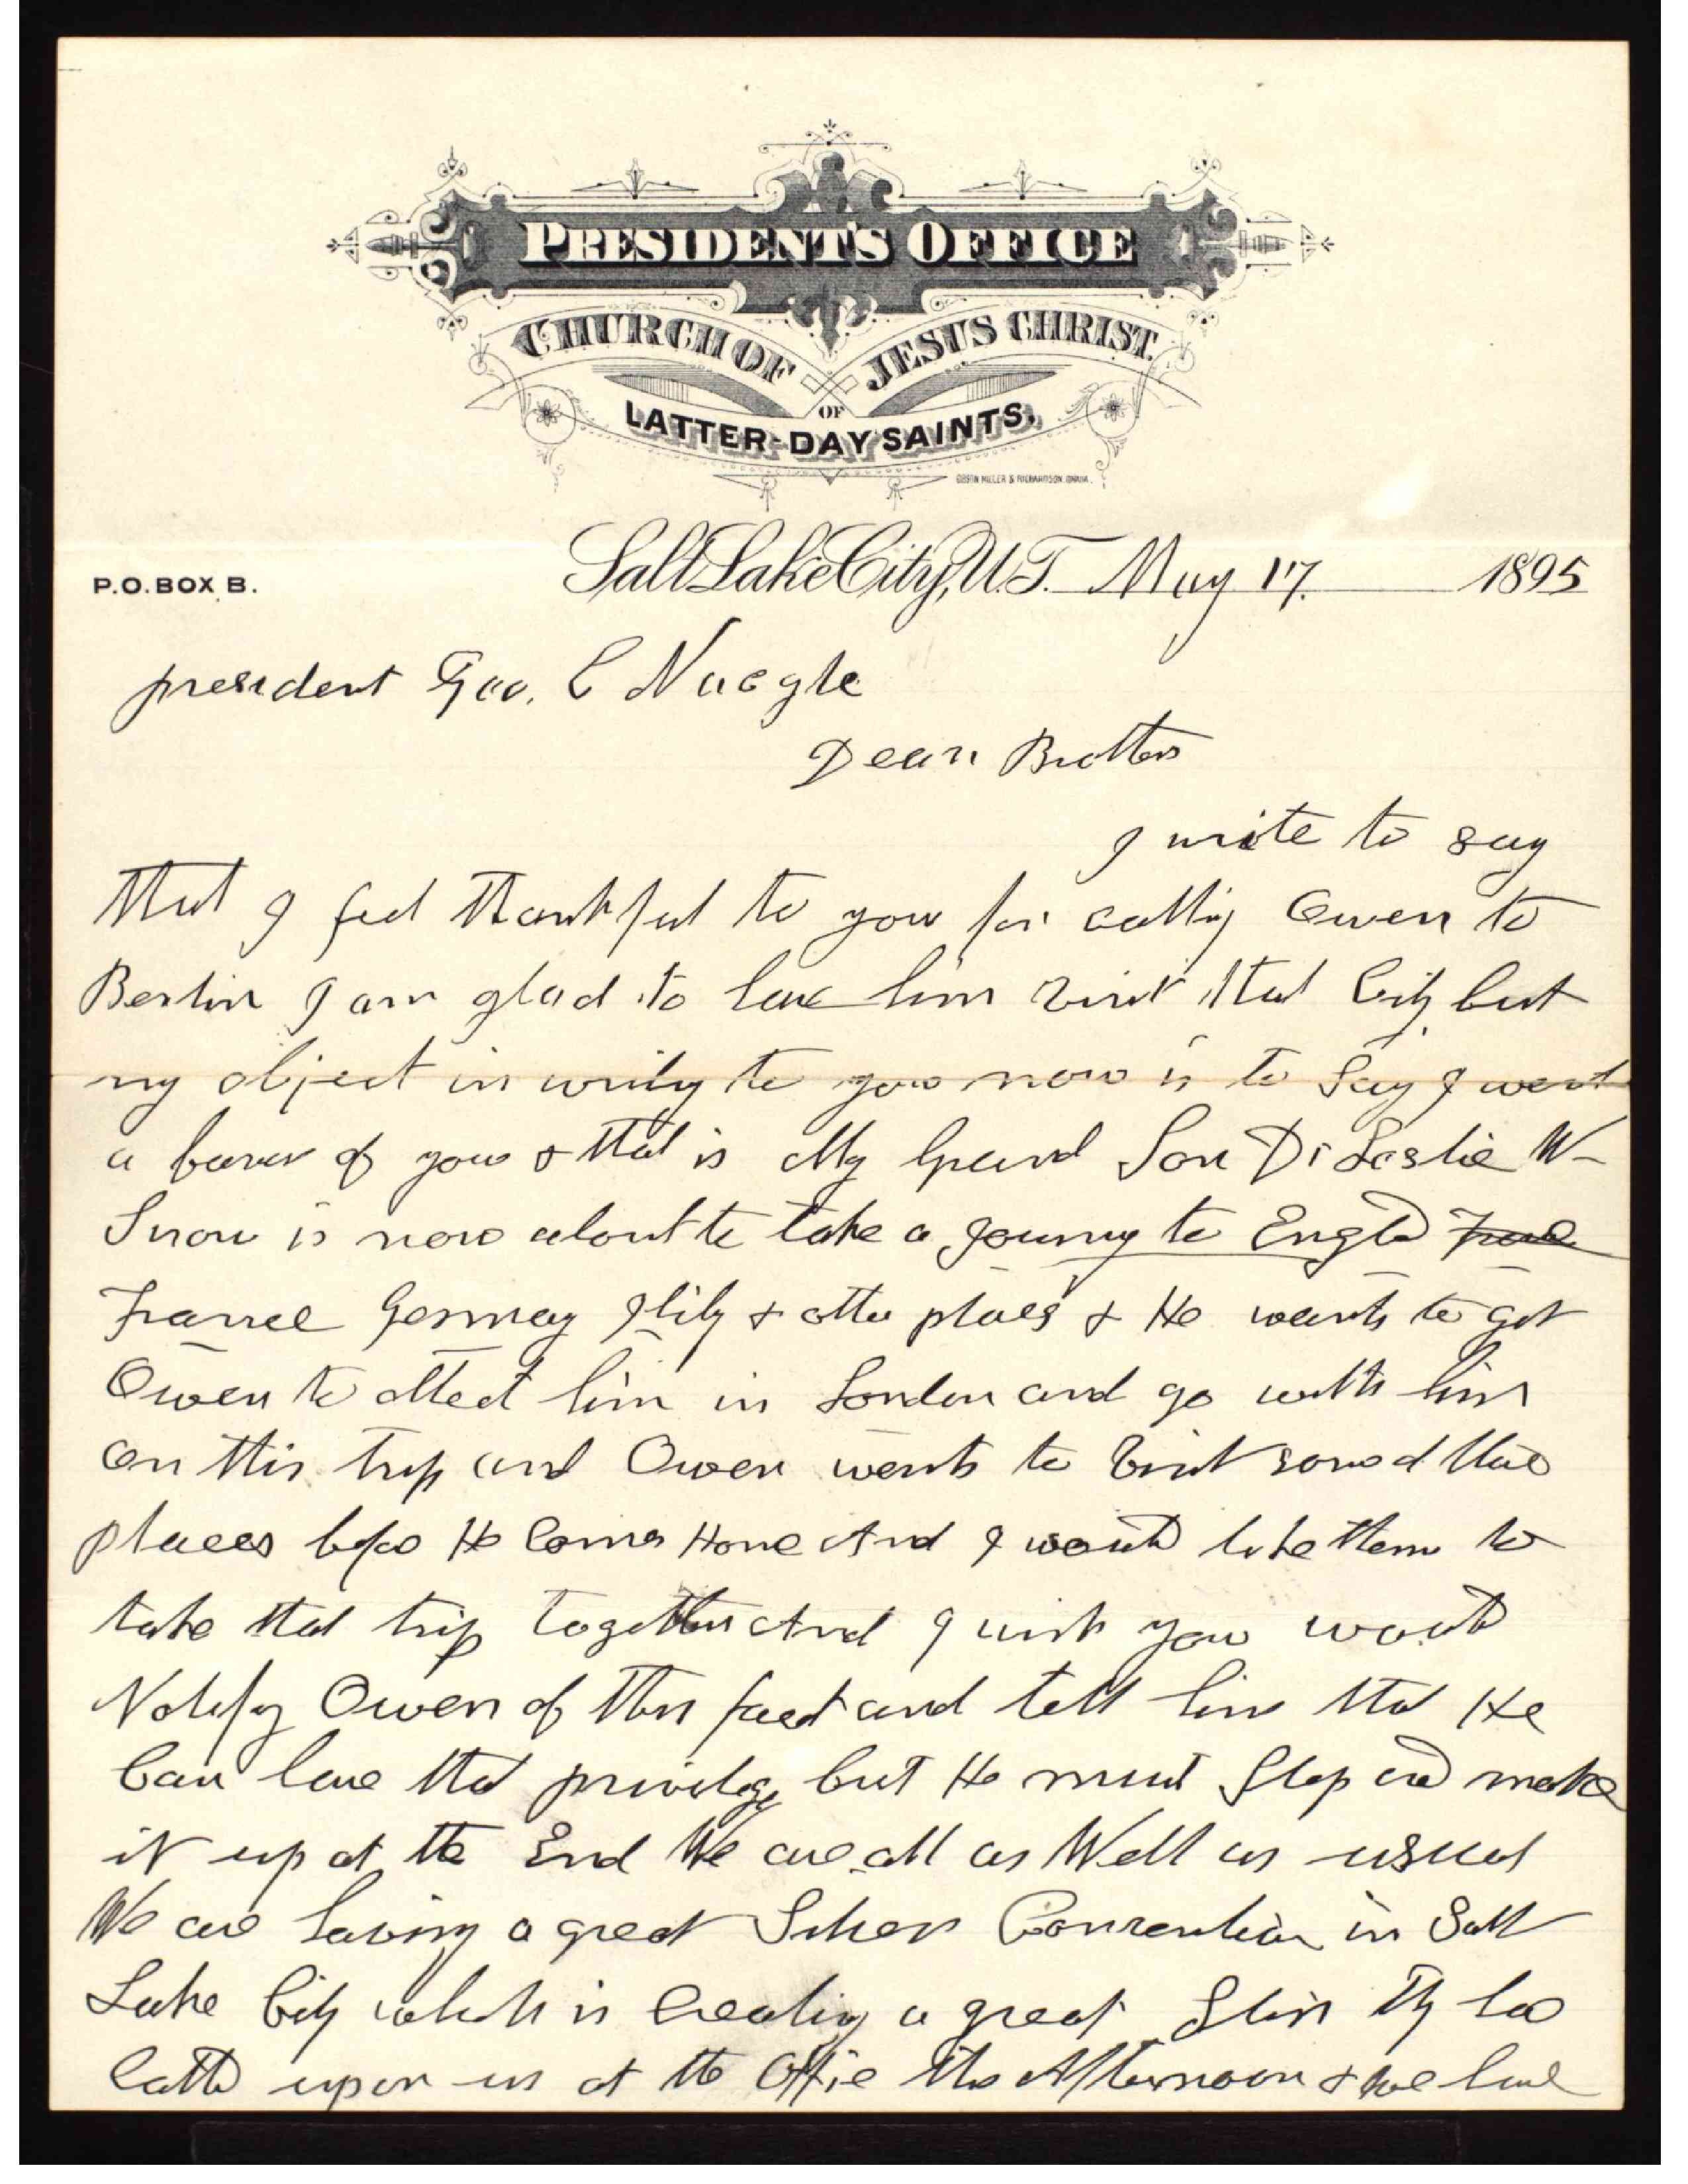 PRESIDENT'S OFFICE
CHURCH OF JESUS CHRIST
OF
LATTER-DAY SAINTS.
P.O. BOX B.
Salt Lake City, U.T. May 17. 1895
president Geo. C Naegle
Dear Brother
I write to say
that I feel thankful to you for calling Owen to
Berlin I am glad to have him visit that City but
my object in writing to you now is to Say I want
a favor of you & that is My Grand Son Dr Leslie W
Snow is now about to take a journey to Engld
France Germay Itily & other places & He wants to get
Owen to Meet him in London and go with him
on this trip and Owen wants to visit some of those
places befor He Comes Home And I would like them to
take that trip together And I wish you would
Notify Owen of this fact and tell him that He
Can have that privilege but He must Stop and make
it up at the End We are all as Well as usual
We are having a great Silver Convention in Salt
Lake City which is Creating a great Stir They have
Called upon us at the Office this Afternoon & we have